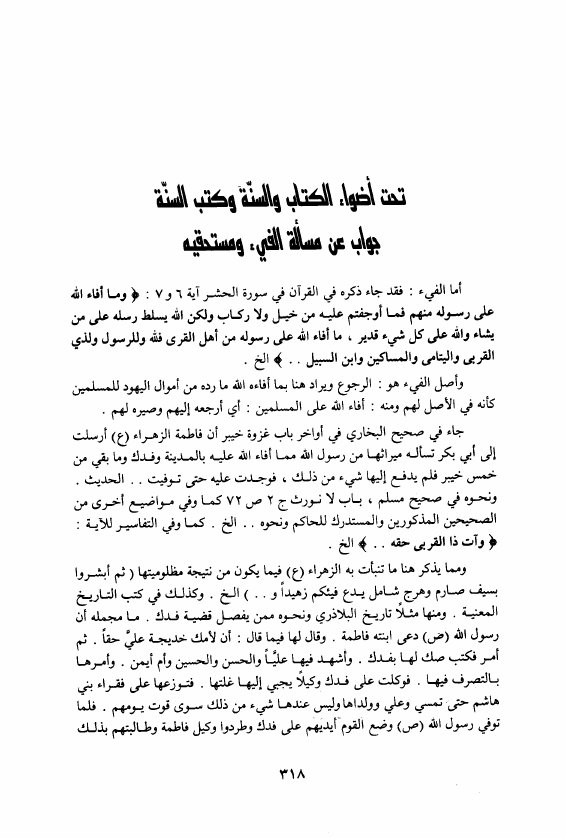 تحت أضواء الكتاب والسنّة وكتب السنّة
جواب عن مسألة الفيء ومستحقيه
أما الفيء : فقد جاء ذكره في القرآن في سورة الحشر آية ٦ و ٧ : ﴿ وما أفاء الله
على رسوله منهم فما أوجفتم عليه من خيل ولا ركاب ولكن الله يسلط رسله على من
يشاء والله على كل شيء قدير ، ما أفاء الله على رسوله من أهل القرى فلله وللرسول ولذي
القربى واليتامى والمساكين وابن السبيل . . ﴾ الخ .
وأصل الفيء هو : الرجوع ويراد هنا بما أفاءه الله ما رده من أموال اليهود للمسلمين
كأنه في الأصل لهم ومنه : أفاء الله على المسلمين : أي أرجعه إليهم وصيره لهم .
جاء في صحيح البخاري في أواخر باب غزوة خيبر أن فاطمة الزهراء (ع) أرسلت
إلى أبي بكر تسأله ميراثها من رسول الله مما أفاء الله عليه بالمدينة وفدك وما بقي من
خمس خيبر فلم يدفع إليها شيء من ذلك ، فوجدت عليه حتى توفيت . . الحديث .
ونحوه في صحيح مسلم ، باب لا نورث ج ٢ ص ٧٢ كما وفي مواضيع أخرى من
الصحيحين المذكورين والمستدرك للحاكم ونحوه . . الخ . كما وفي التفاسير للآية :
﴿ وآت ذا القربى حقه . . ﴾ الخ .
ومما يذكر هنا ما تنبأت به الزهراء (ع) فيما يكون من نتيجة مظلوميتها ( ثم أبشروا
بسيف صارم وهرج شامل يدع فيئكم زهيداً و . . ) الخ . وكذلك في كتب التاريخ
المعنية . ومنها مثلاً تاريخ البلاذري ونحوه ممن يفصل قضية فدك . ما مجمله أن
رسول الله (ص) دعى ابنته فاطمة . وقال لها فيما قال : أن لأمك خديجة عليّ حقاً . ثم
أمر فكتب صك لها بفدك . وأشهد فيها عليّاً والحسن والحسين وأم أيمن . وأمرها
بالتصرف فيها . فوكلت على فدك وكيلاً يجبي إليها غلتها . فتوزعها على فقراء بني
هاشم حتى تمسي وعلي وولداها وليس عندها شيء من ذلك سوى قوت يومهم . فلما
توفي رسول الله (ص) وضع القوم أيديهم على فدك وطردوا وكيل فاطمة وطالبتهم بذلك
٣١٨